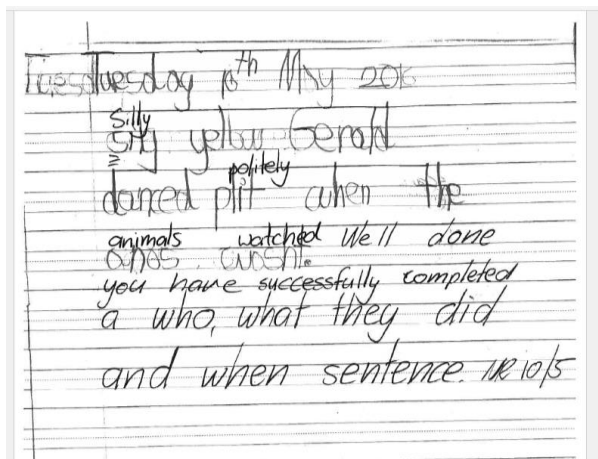 Tuesday 10th May 2016
Silly
silly yellow Gerald
politely
danced plit when the
animals watched Well done
anos. wosht.
you have successfully completed
a who, what they did
and when sentence. NR 10/5